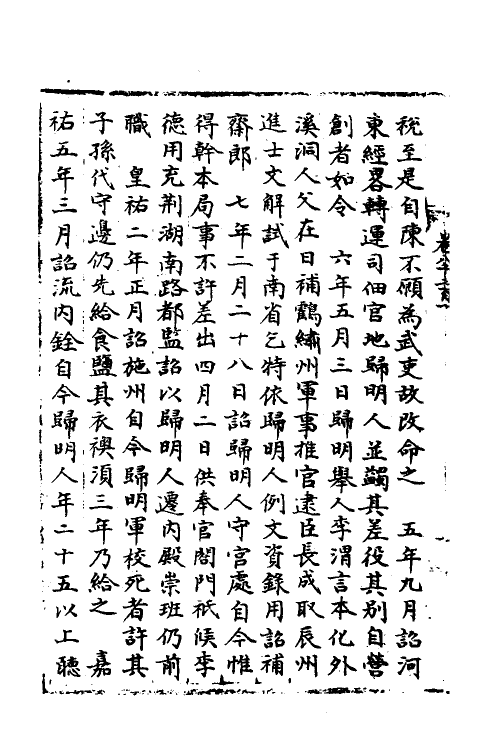 稅至是自陳不願為武吏故改命之　五年九月詔河
東經畧轉運司佃官地歸明人並蠲其差役其別自營
創者如令　六年五月三日歸明舉人李渭言本化外
溪洞人父在日補鶴繡州軍事推官逮臣長成取辰州
進士文解試于南省乞特依歸明人例文資錄用詔補
齋郎　七年二月二十八日詔歸明人守官處自今惟
得幹本局事不許差出四月二日供奉官閤門祗候李
德用充荆湖南路都監詔以歸明人遷內殿崇班仍前
職　皇祐二年正月詔施州自今歸明軍校死者許其
子孫代守邊仍先給食鹽其衣襖須三年乃給之　嘉
祐五年三月詔流內銓自今歸明人年二十五以上聽